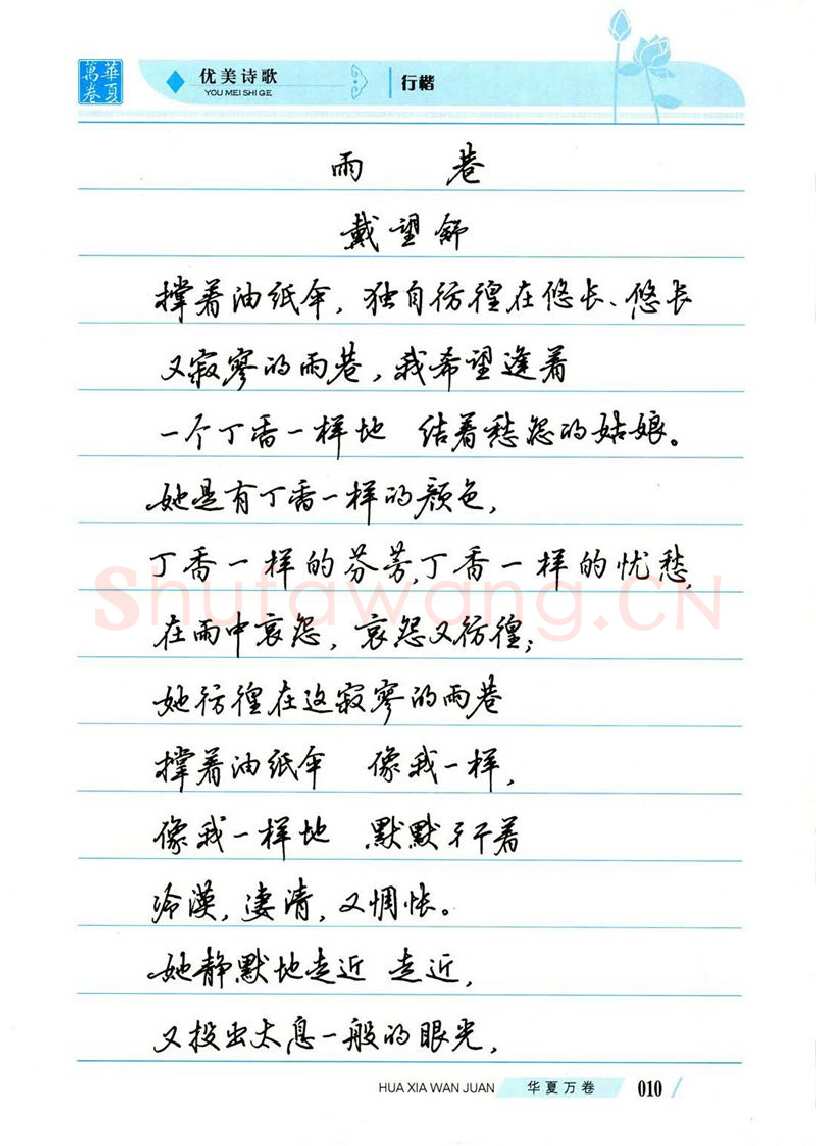 華夏萬卷
优美诗歌 行楷
YOU MEI SHI GE
雨 巷
戴望舒
撑着油纸伞，独自彷徨在悠长、悠长
又寂寥的雨巷，我希望逢着
一个丁香一样地 结着愁怨的姑娘。
她是有丁香一样的颜色，
丁香一样的芬芳，丁香一样的忧愁，
在雨中哀怨，哀怨又彷徨；
她彷徨在这寂寥的雨巷
撑着油纸伞 像我一样，
像我一样地 默默彳亍着
冷漠，凄清，又惆怅。
她静默地走近 走近，
又投出太息一般的眼光，
Shufawang.CN
HUA XIA WAN JUAN 华夏万卷 010